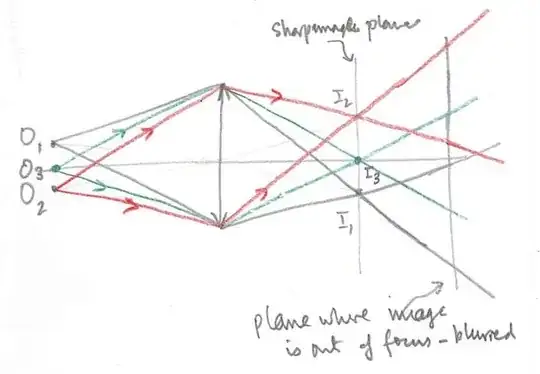 sharp image plane
I2
O1
O3
O2
I3
I1
plane where image
is out of focus - blurred